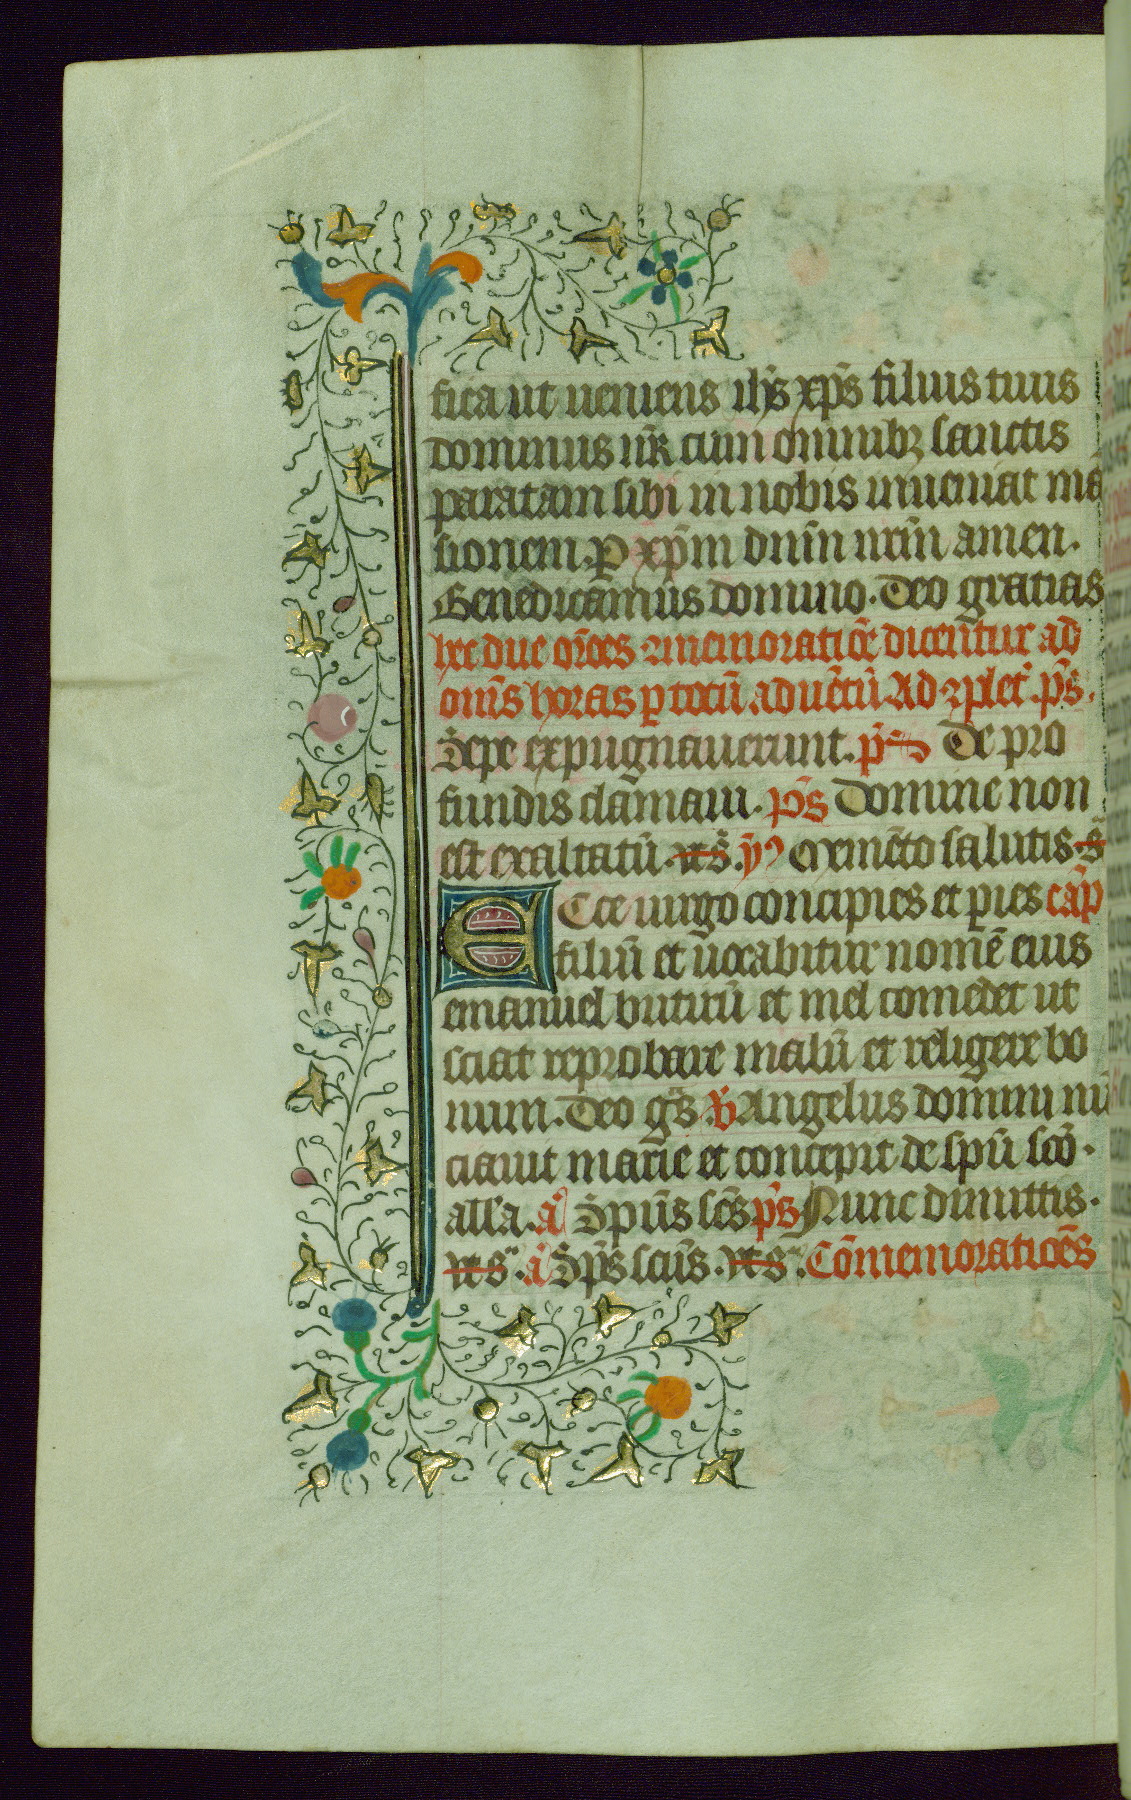 fica ut ueniens ih̅s xp̅s filius tuus
dominus nr̅ cum omnibꝫ sanctis
paratam sibi in nobis inueniat ma
sionem. ꝑ xp̅m dn̅m nr̅m amen.
Benedicamus domino. Deo gratias
hec due or̅oes ⁊ memoratio̅e dicentur ad
om̅s horas ꝑ totu̅ aduentu̅ Ad ꝯplet̅. ps̅.
Sepe expugnauerunt. ps̅ De pro
fundis clamaui. ps̅ Domine non
est exaltatu̅. ym̅ Meme̅to salutis.
Ecce uirgo concipies et paries cap̅
filiu̅ et uocabitur nome̅ eius
emanuel butiru̅ et mel comedet ut
sciat reprobare malu̅ et religere bo
num. Deo gr̅s. V̅ Angelus domini nu̅
ciauit marie et concepit de spu̅ sco̅.
all'a. a̅ Spu̅s sc̅s ps̅ Nunc dimittis.
a̅ Sps̅ scu̅s. Co̅memoratioe̅s